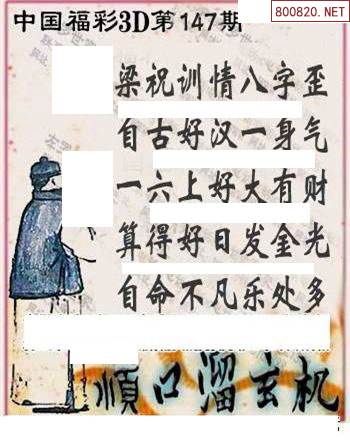 中国福彩3D第147期
800820.NET
梁祝训情八字歪
自古好汉一身气
一六上好大有财
算得好日发金光
自命不凡乐处多
順口溜玄机